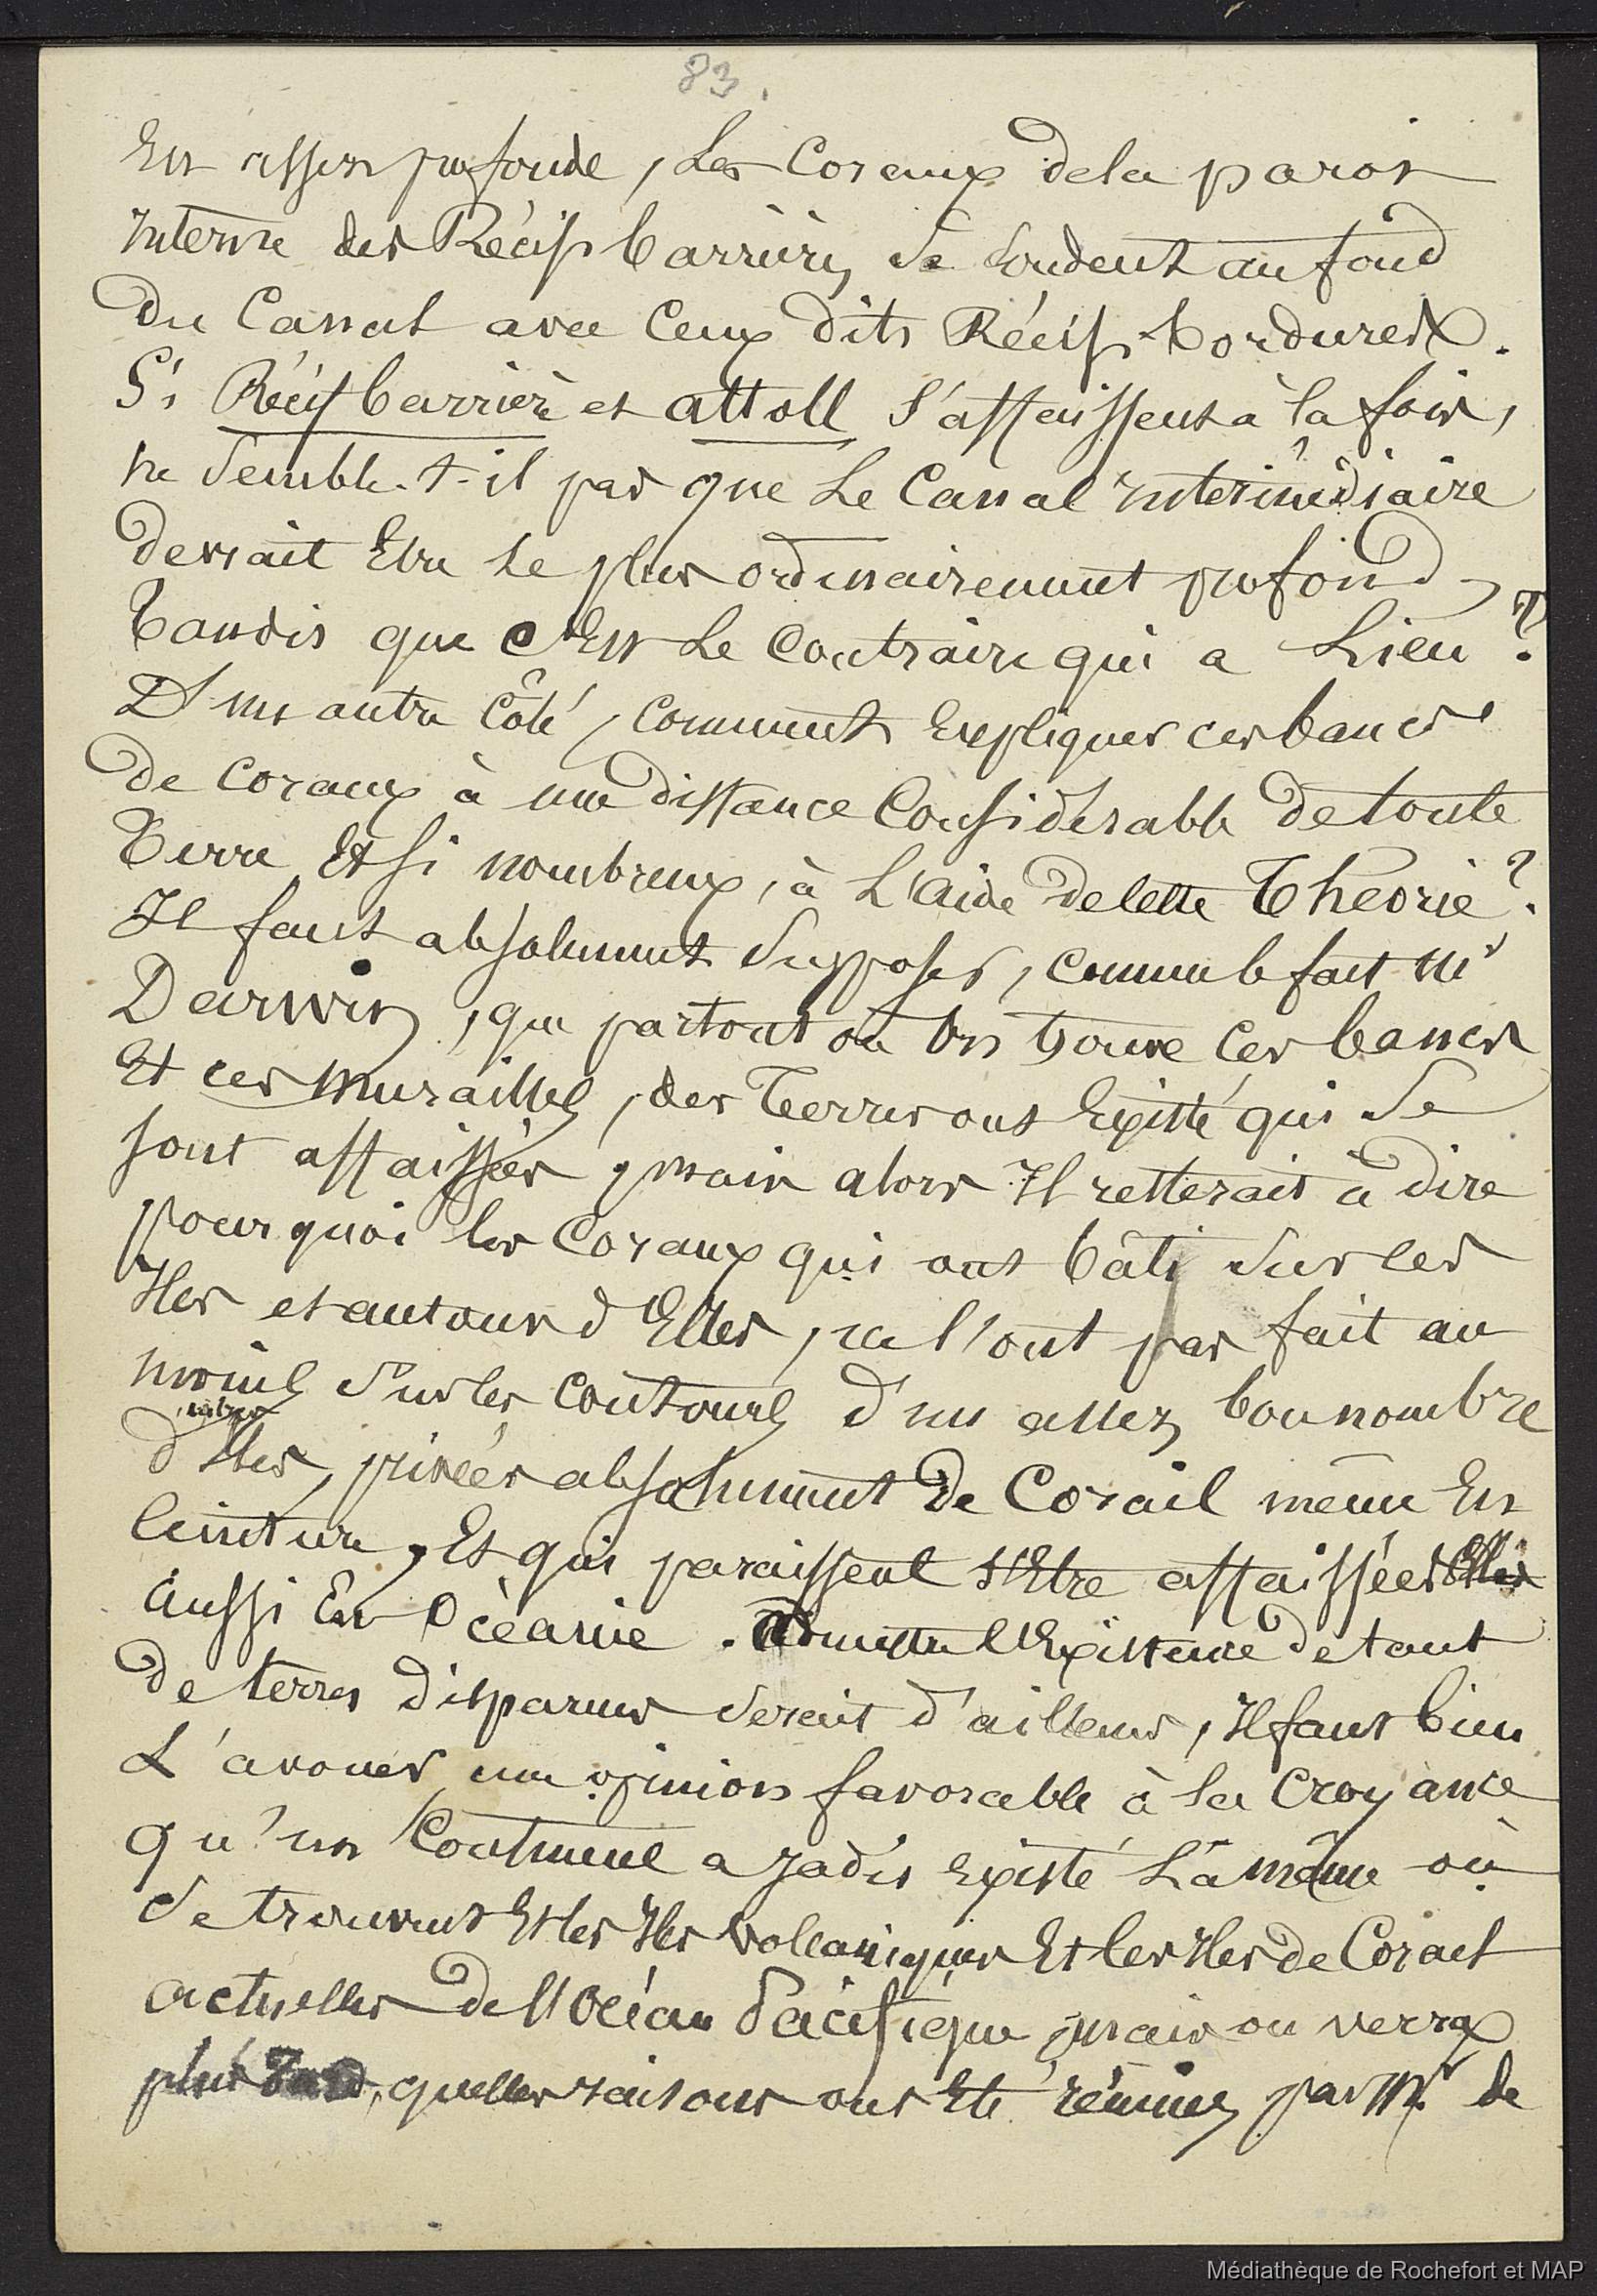 83.
Est assez profonde, Les Coraux de la paroi
Interne des Récifs barrières se soudent au fond
du Canal avec Ceux dits Récifs bordures.
Si Récif barrière et attoll s'affaissent à la fois,
ne semble-t-il pas que Le Canal intermédiaire
devrait Etre Le plus ordinairement profond,
Tandis que c'Est Le Contraire qui a Lieu ?
D'un autre Côté, Comment Expliquer ces bancs
de Coraux à une distance Considérable de toute
Terre Et si nombreux, à L'aide de cette Théorie ?
Il faut absolument supposer, comme le fait Mr
Darwin, que partout où On trouve Ces bancs
Et ces murailles, des Terres ont Existé qui se
sont affaissées, mais alors Il resterait à dire
pourquoi les Coraux qui ont bâti sur les
Iles et autour d'Elles, ne l'ont pas fait au
moins sur les Contours d'un assez bon nombre
d'Iles, privées absolument de Corail même En
Ceinture, Et qui paraissent s'Etre affaissées Elles
aussi En Océanie. Admettre l'Existence de tant
de terres disparues serait d'ailleurs, Il faut bien
L'avouer une opinion favorable à la Croyance
qu'un Continent a Jadis Existé Là même où
se trouvent Et les Iles Volcaniques Et les Iles de Corail
actuelles de l'Océan Pacifique, mais on verra
plus Tard, quelles raisons ont Eté réunies par Mr de
Médiathèque de Rochefort et MAP